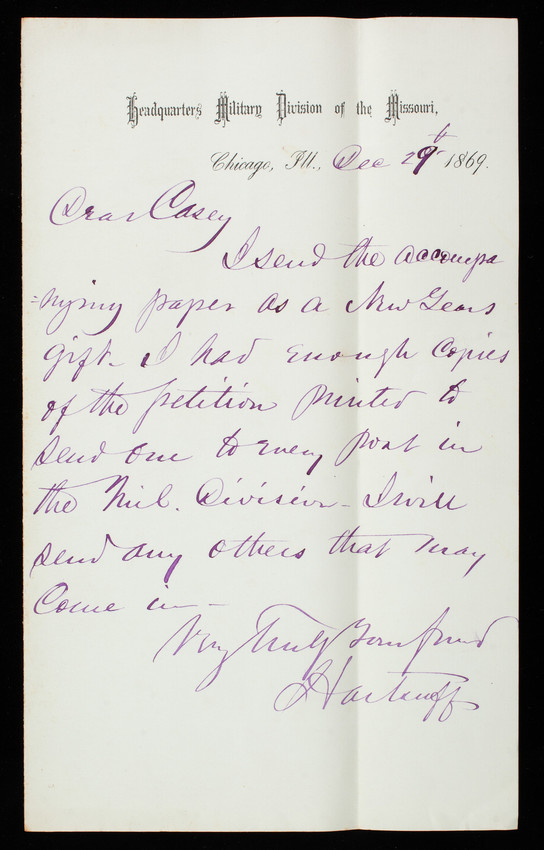 Headquarters Military Division of the Missouri,
Chicago, Ill., Dec 29th 1869.
Dear Casey
I send the accompa
=nying paper as a New Years
gift. I had enough copies
of the petition printed to
send one to every post in
the Mil. Division - I will
send any others that may
Come in -
Very Truly Your friend
Hartsuff